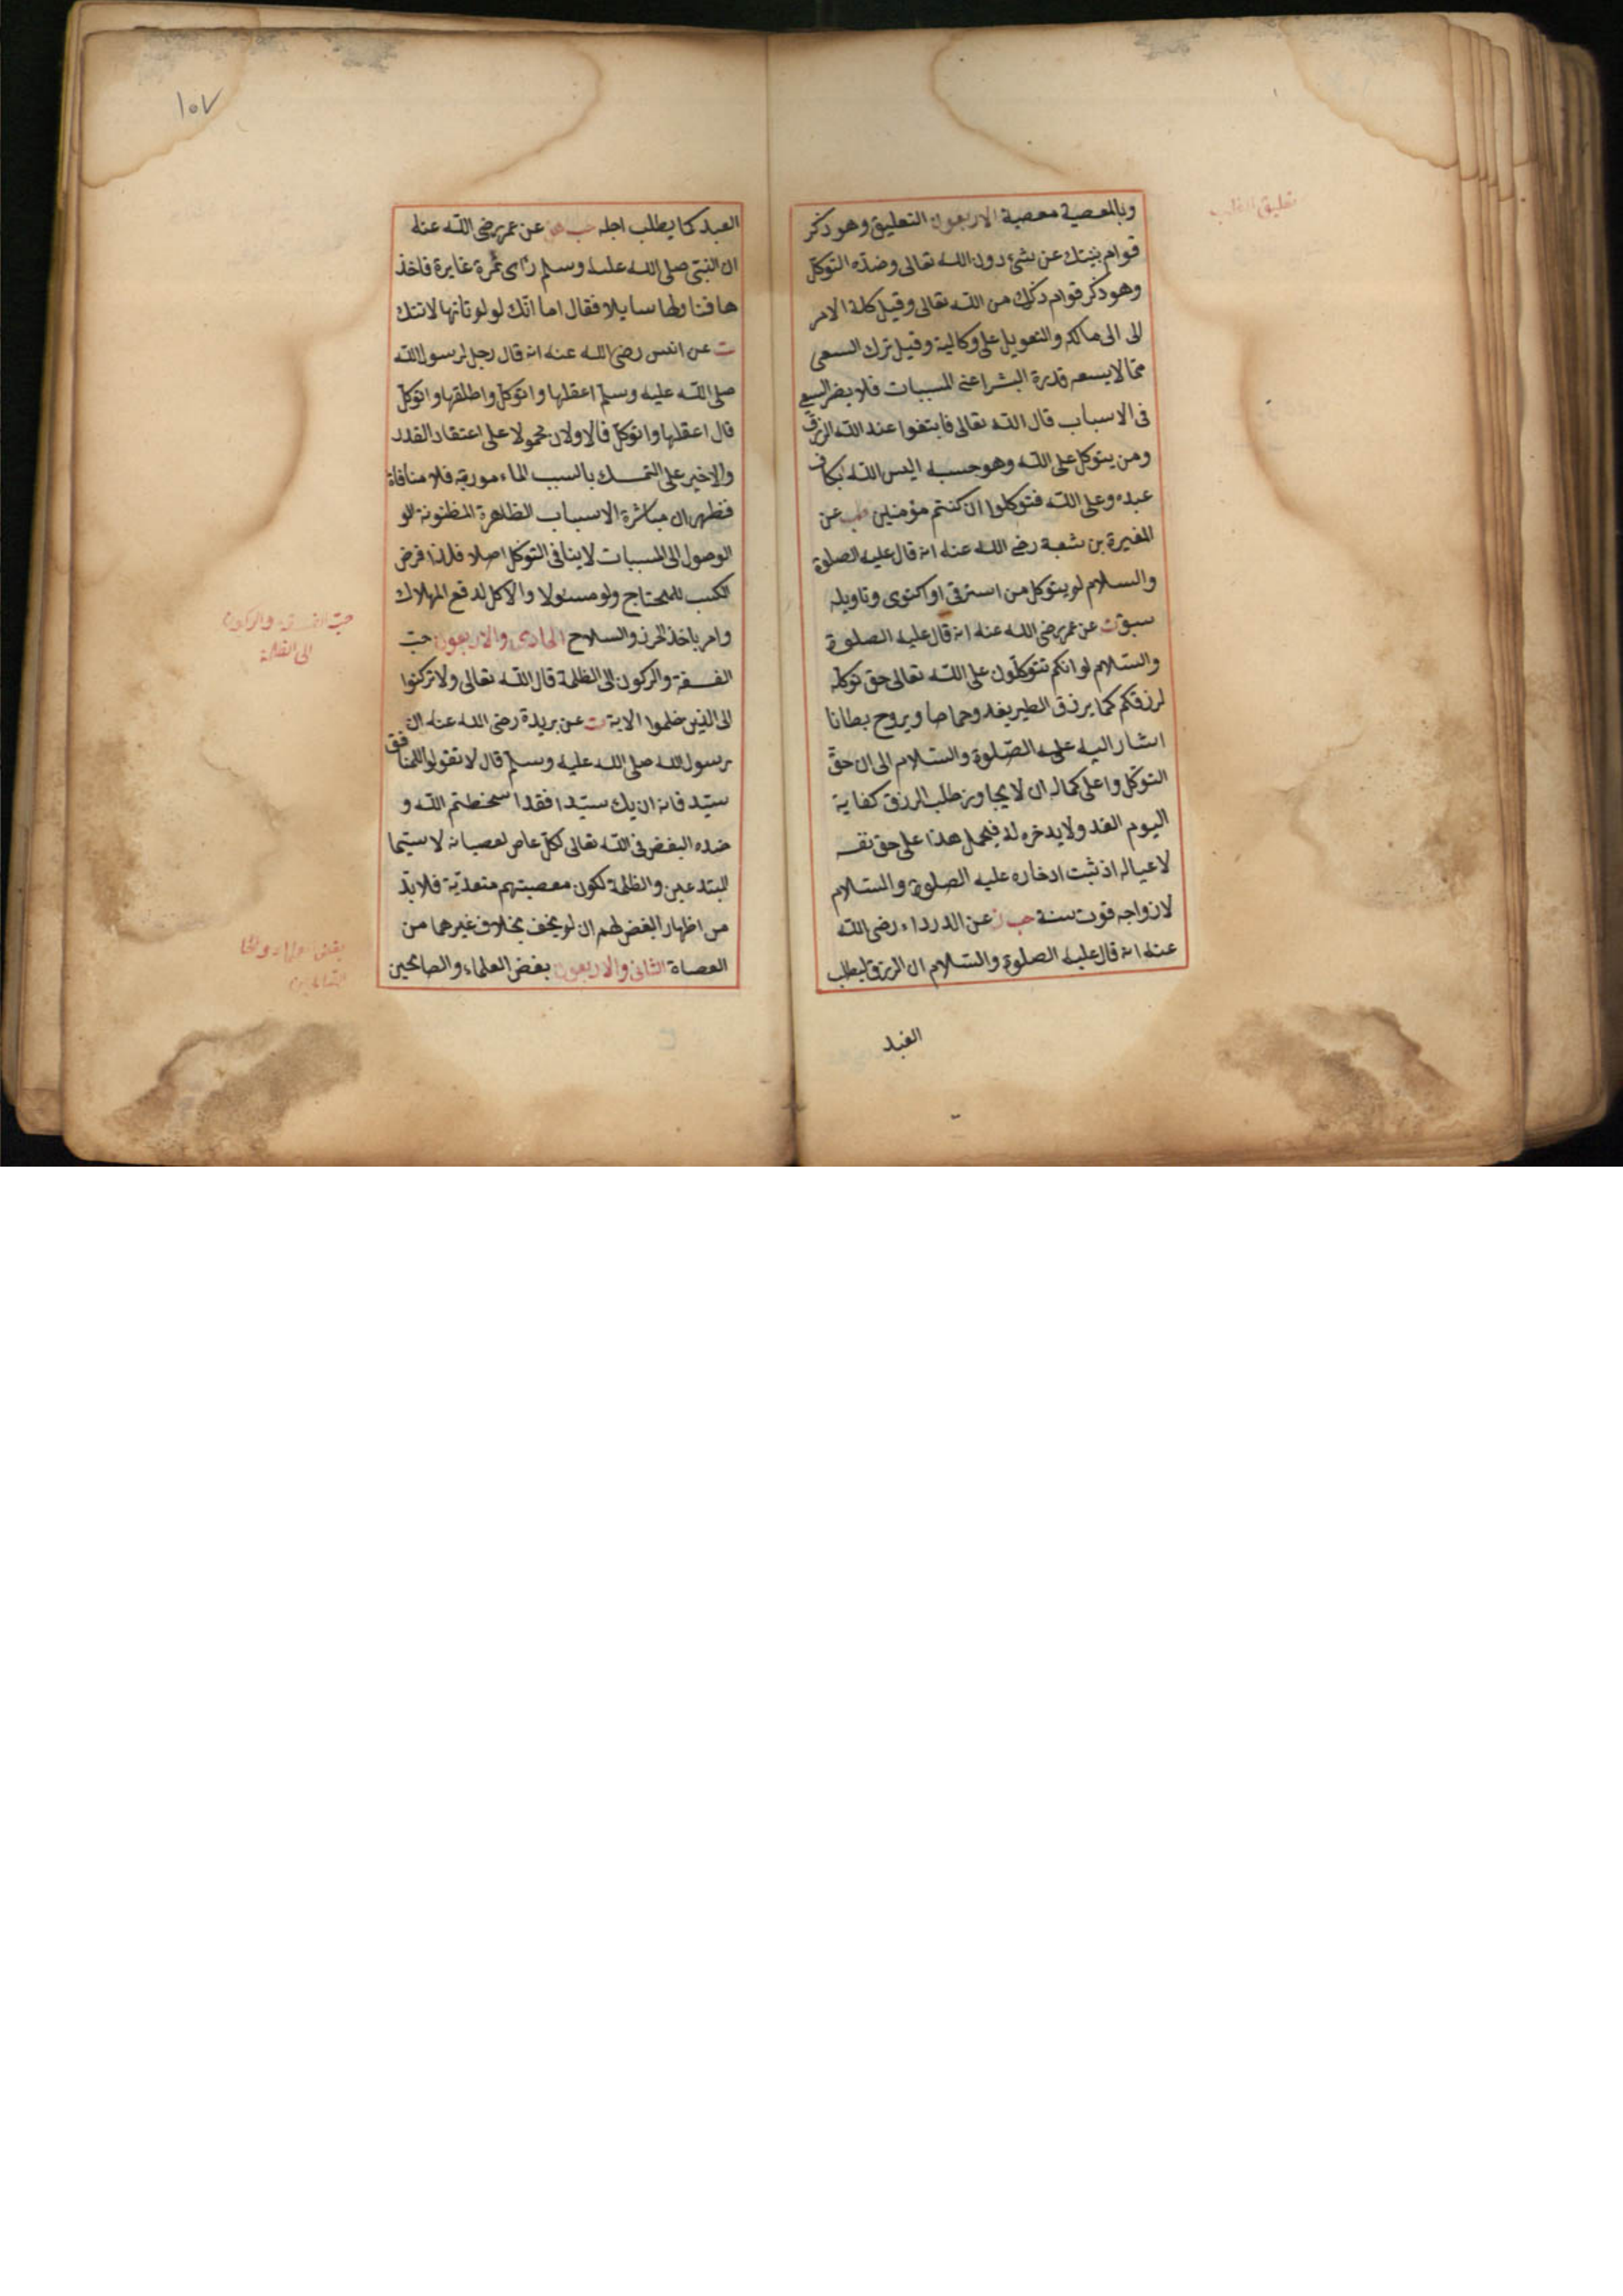 تعليق القلب
وبالمعصية معصية الاربعون التعليق وهو ذكر
قوام بنيتك عن شئ دون الله تعالى وضده التوكل
وهو ذكر قوام ذلك من الله تعالى وقيل كلة الامر
الى الى مالكه والتعويل على وكالية وقيل ترك السعى
ممّا لا يسعه قدرة البشر اعنى المسببات فلا يضر السعى
فى الاسباب قال الله تعالى فابتغوا عند الله الرزق
ومن يتوكل على الله وهو حسبه اليس الله بكاف
عبده وعلى الله فتوكلوا ان كنتم مؤمنين عن
المغيرة بن شعبة رضى الله عنه انه قال عليه الصلوة
والسلام لو يتوكل من استرقى او اكتوى وتاويله
سبق ت عن عمر رضى الله عنه انه قال عليه الصلوة
والسّلام لو انكم تتوكلون على الله تعالى حق توكله
لرزقكم كما يرزق الطير يغدو خماصا ويروح بطانا
اشار اليه عليه الصّلوة والسّلام الى ان حقّ
التوكل واعلى كماله ان لا يجاوز طلب الرزق كفاية
اليوم الغد ولا يدخره له فيحمل هذا على حق نفسه
لا عياله اذ ثبت ادخاره عليه الصلوة والسّلام
لازواجه قوت سنة حب ز عن الدرداء رضى الله
عنه انه قال عليه الصلوة والسّلام ان الرزق ليطلب
العبد
١٥٧
العبد كما يطلب اجله حب هق عن عمر رضى الله عنه
ان النبىّ صلى الله عليه وسلم رأى تمرة غايرة فاخذ
ها فناولها سايلا فقال اما انّك لو لو تأتها لاتتك
ت عن انس رضى الله عنه انه قال رجل لرسول الله
صلى الله عليه وسلم اعقلها واتوكل واطلقها واتوكل
قال اعقلها واتوكل فالاولان محمولا على اعتقاد القدر
والاخير على التمسك بالسبب الماءموربه فلا منافاة
فظهر ان مباشرة الاسباب الظاهرة المظنونة الو
الوصول الى المسببات لا ينافى التوكل اصلا فلذا فرض
الكسب للمحتاج ولو مسئولا والاكل لدفع الهلاك
وامر باخذ الحرز والسلاح الحادى والاربعون حبّ
الفسقة والركون الى الظلمة قال الله تعالى ولا تركنوا
الى الذين ظلموا الاية ت عن بريدة رضى الله عنه ان
رسول الله صلى الله عليه وسلم قال لا تقولوا للمنافق
سيّد فانه ان يك سيّدا فقد اسخطتم الله و
ضده البغض فى الله تعالى لكل عاص لعصيانه لا سيّما
المبتدعين والظلمة لكون معصيتهم متعدّية فلا بدّ
من اظهار البغض لهم ان لو يخف بخلاف غيرهما من
العصاة الثانى والاربعون بغض العلماء والصالحين
حبّ الفسقة والركون
الى الظلمة
بغض العلماء